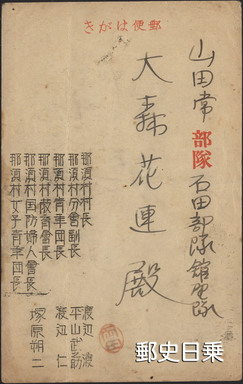 郵便はがき
山田常部隊石田部隊
大森花連殿
那須村村長
那須村分會副長
那須村青年団長
那須村會長
那須村国防婦人會長
那須村女子青年団長
渡辺
平山武之助
渡辺 仁
塚原朔二
郵史日乗